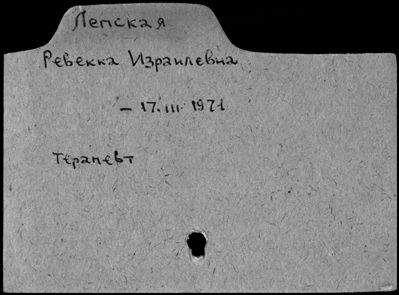 Лепская
Ревекка Израилевна
– 17.III.1971
Терапевт